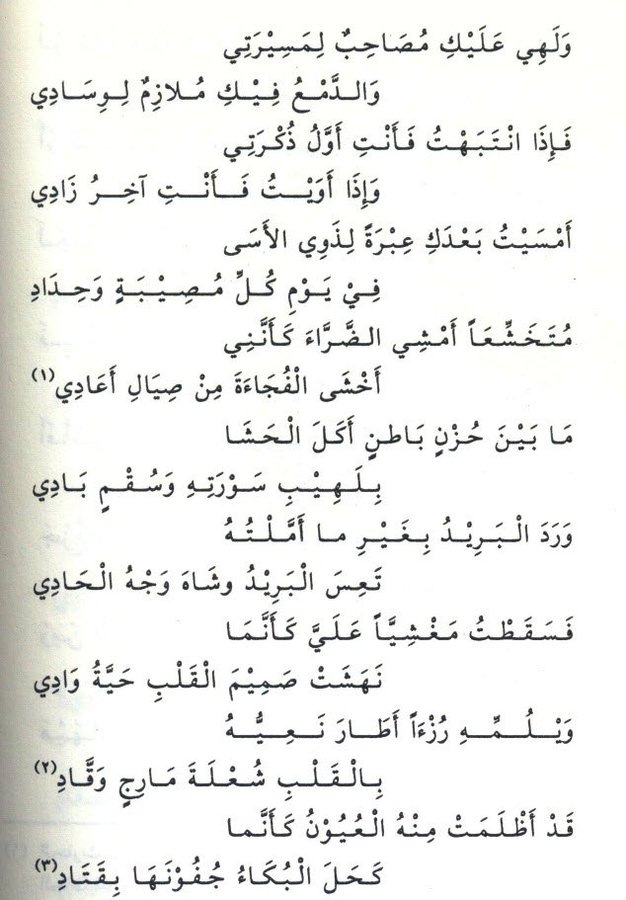 وَلَهِي عَلَيْكِ مُصَاحِبٌ لِمَسِيْرَتِي
وَالدَّمْعُ فِيْكِ مُلازِمٌ لِوِسَادِي
فَإِذَا انْتَبَهْتُ فَأَنْتِ أَوَّلُ ذُكْرَتِي
وَإِذَا أَوَيْتُ فَأَنْتِ آخِرُ زَادِي
أَمْسَيْتُ بَعْدَكِ عِبْرَةً لِذَوِي الأَسَى
فِيْ يَوْمِ كُلِّ مُصِيْبَةٍ وَحِدَادِ
مُتَخَشِّعَاً أَمْشِي الضَّرَّاءَ كَأَنَّنِي
أَخْشَى الْفُجَاءَةَ مِنْ صِيَالِ أَعَادِي(١)
مَا بَيْنَ حُزْنٍ بَاطنٍ أَكَلَ الْحَشَا
بِلَهِيْبِ سَوْرَتِهِ وَسُقْمٍ بَادِي
وَرَدَ الْبَرِيْدُ بِغَيْرِ ما أَمَّلْتُهُ
تَعِسَ الْبَرِيْدُ وشَاهَ وَجْهُ الْحَادِي
فَسَقَطْتُ مَغْشِيَّاً عَلَيَّ كَأَنَّمَا
نَهَشَتْ صَمِيْمَ الْقَلْبِ حَيَّةُ وَادِي
وَيْلُمِّهِ رُزْءَاً أَطَارَ نَعِيُّهُ
بِالْقَلْبِ شُعْلَةَ مَارِجٍ وَقَّادِ(٢)
قَدْ أَظْلَمَتْ مِنْهُ الْعُيُوْنُ كَأَنَّما
كَحَلَ الْبُكَاءُ جُفُوْنَهَا بِقَتَادِ(٣)